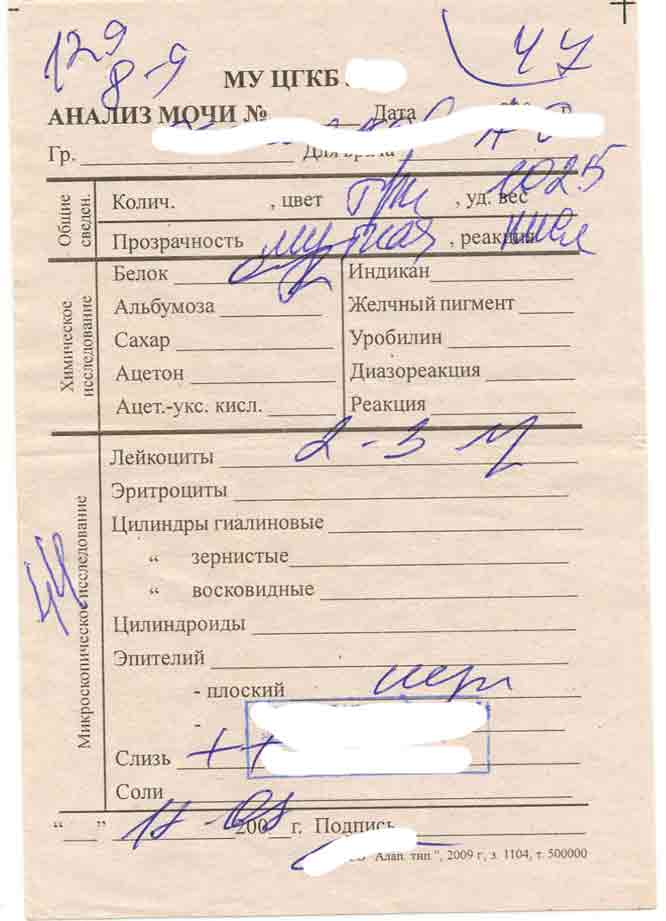 129
8-9
47
МУ ЦГКБ
АНАЛИЗ МОЧИ № Дата г.
Гр. Для врача
Общие сведен.
Колич. , цвет , уд. вес 1025
Прозрачность мутная , реакция щел
Химическое исследование
Белок Индикан
Альбумоза Желчный пигмент
Сахар Уробилин
Ацетон Диазореакция
Ацет.-укс. кисл. Реакция
Микроскопическое исследование
Лейкоциты 2-3
Эритроциты
Цилиндры гиалиновые
“ зернистые
“ восковидные
Цилиндроиды
Эпителий
- плоский
-
Слизь ++
Соли
“ ” 200 г. Подпись
"Алап. тип.", 2009 г, з. 1104, т. 500000